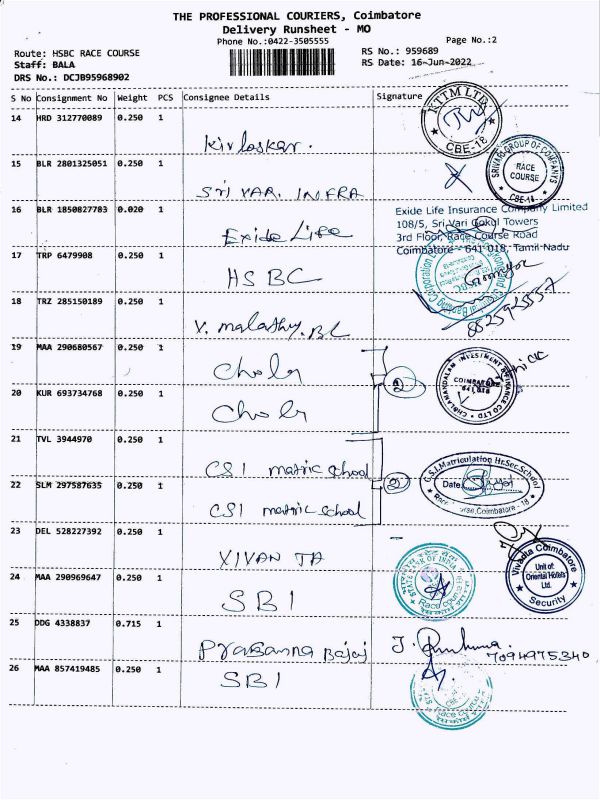 THE PROFESSIONAL COURIERS, Coimbatore
Delivery Runsheet - MO
Phone No.:0422-3505555
Page No.:2
Route: HSBC RACE COURSE
RS No.: 959689
Staff: BALA
RS Date: 16-Jun-2022
DRS No.: DCJB95968902
S No Consignment No Weight PCS Consignee Details Signature
14 HRD 312770089 0.250 1
Kirloskar.
KTTM LTD
CBE-18
15 BLR 2801325051 0.250 1
SRI VARI INFRA
SRIVARI GROUP OF COMPANYS
RACE COURSE
CBE-18
16 BLR 1850827783 0.020 1
Exide Life
Exide Life Insurance Company Limited
108/5, Sri Vari Gokul Towers
3rd Floor, Race Course Road
Coimbatore - 641 018, Tamil Nadu
17 TRP 6479908 0.250 1
HSBC
18 TRZ 285150189 0.250 1
V. Malathy. BL
19 MAA 290680567 0.250 1
Chola
20 KUR 693734768 0.250 1
Chola
2
CHOLAMANDALAM INVESTMENT & FINANCE CO LTD
COIMBATORE
641 018
21 TVL 3944970 0.250 1
CSI matric School
22 SLM 297587635 0.250 1
CSI matric School
2
C.S.I. Matriculation Hr.Sec. School
Date:
Coimbatore - 18
23 DEL 528227392 0.250 1
VIVAN TA
Vivanta Coimbatore
Unit of:
Oriental Hotels Ltd.
Security
24 MAA 290969647 0.250 1
SBI
STATE BANK OF INDIA
Race course
25 DDG 4338837 0.715 1
Prasanna Bajaj
7094975340
26 MAA 857419485 0.250 1
SBI